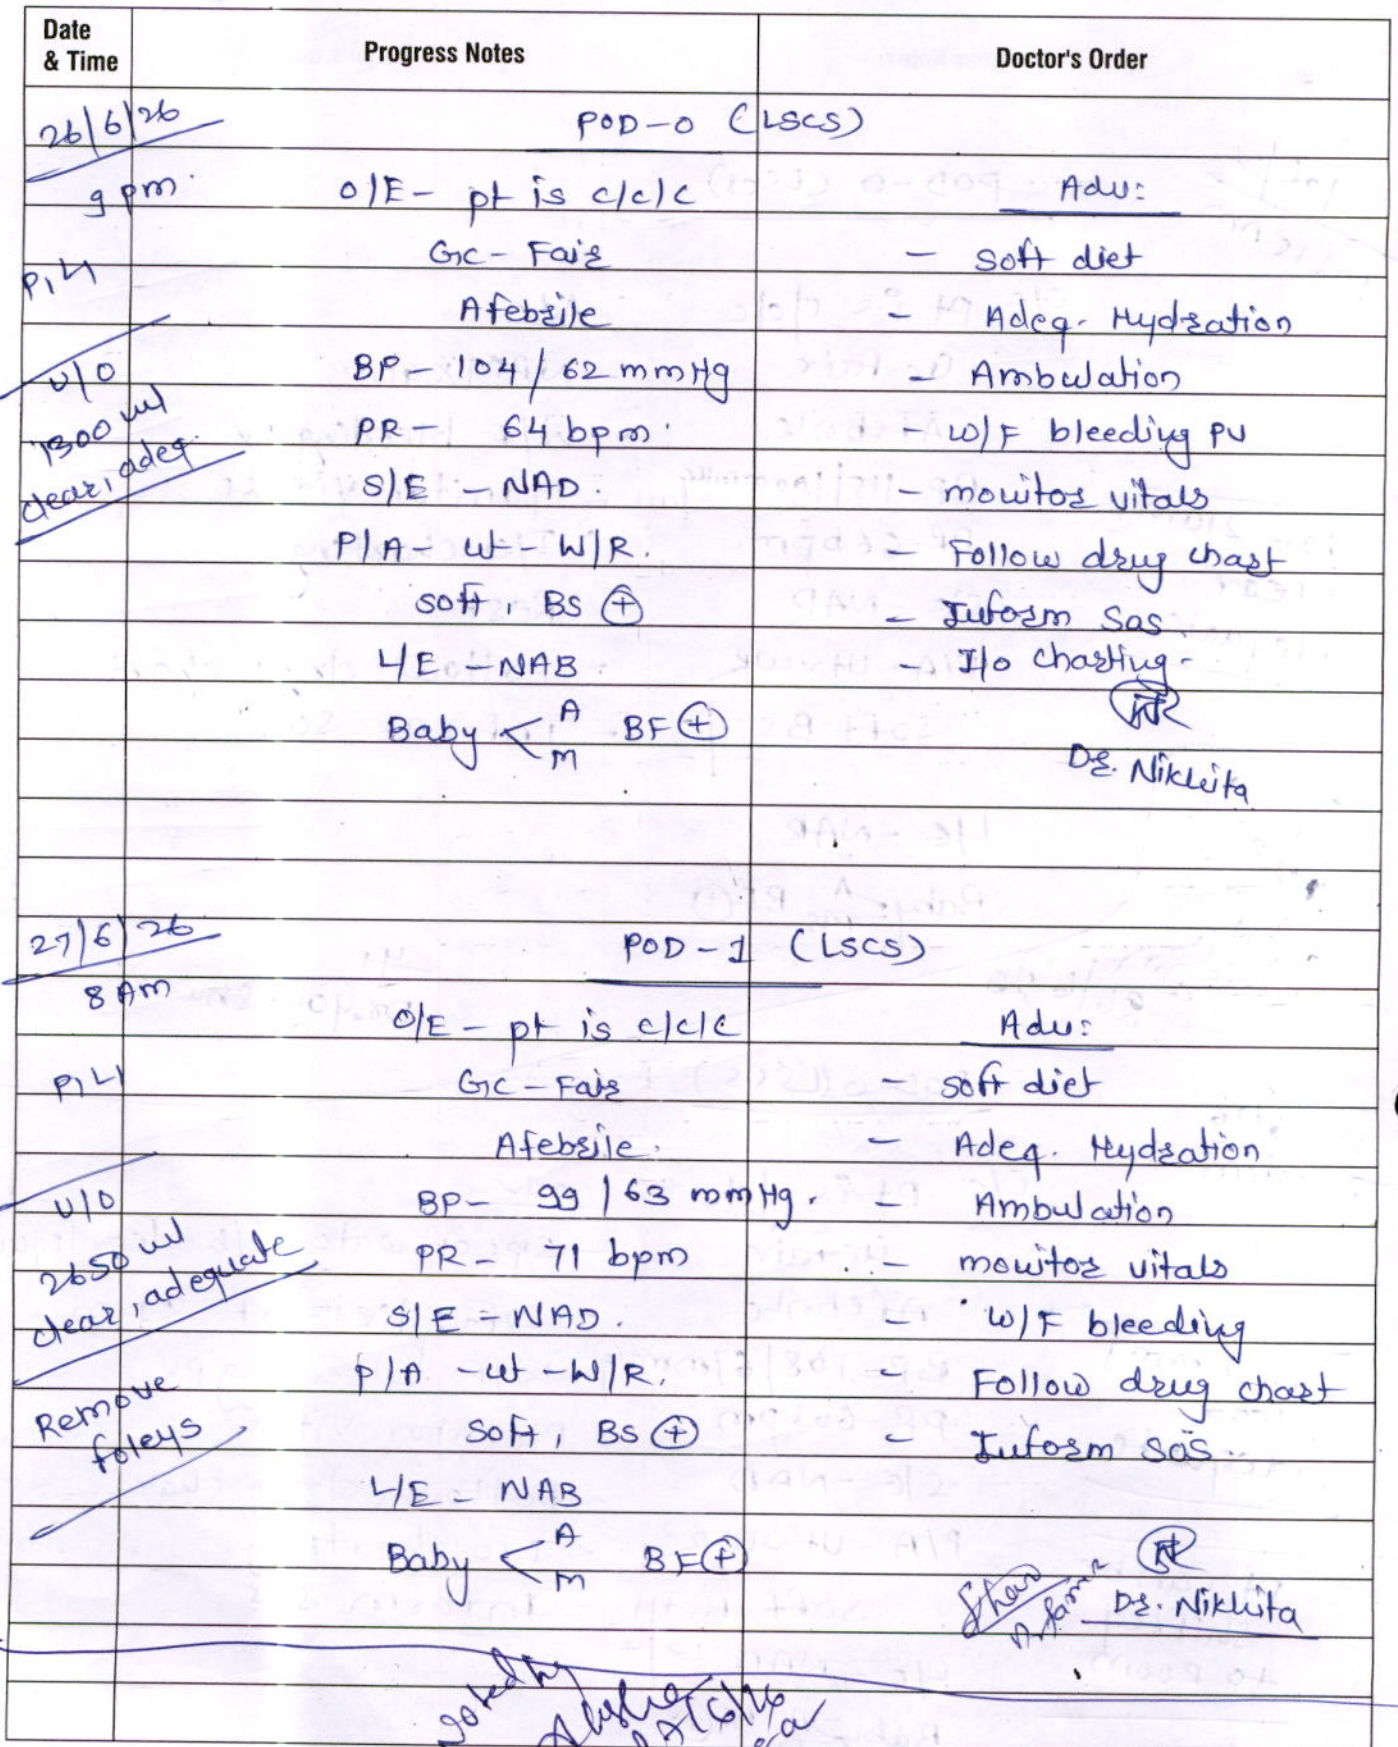 Date & Time
Progress Notes
Doctor's Order
26/6/26
POD-0 (LSCS)
9 pm.
O/E - pt is c/c/c
Adv:
GC - Fair
- Soft diet
P1L1
Afebrile
- Adeq. Hydration
U/O
BP - 104/62 mmHg
- Ambulation
1300 ml
PR - 64 bpm.
- W/F bleeding PV
clear, adeq.
S/E - NAD.
- monitor vitals
P/A - ut - W/R.
- Follow drug chart
soft, BS ⊕
- Inform SOS
L/E - NAB.
- I/O charting.
Baby < A M BF ⊕
Dr. Nikhita
27/6/26
POD-1 (LSCS)
8 Am
O/E - pt is c/c/c
Adv:
P1L1
GC - Fair
- soft diet
Afebrile.
- Adeq. Hydration
U/O
BP - 99/63 mmHg.
- Ambulation
2650 ml
PR - 71 bpm
- monitor vitals
clear, adequate
S/E - NAD.
- W/F bleeding
P/A - ut - W/R.
- Follow drug chart
Remove
foleys
Soft, BS ⊕
- Inform SOS
L/E - NAB
Baby < A M BF ⊕
Dr. Nikhita
Noted by